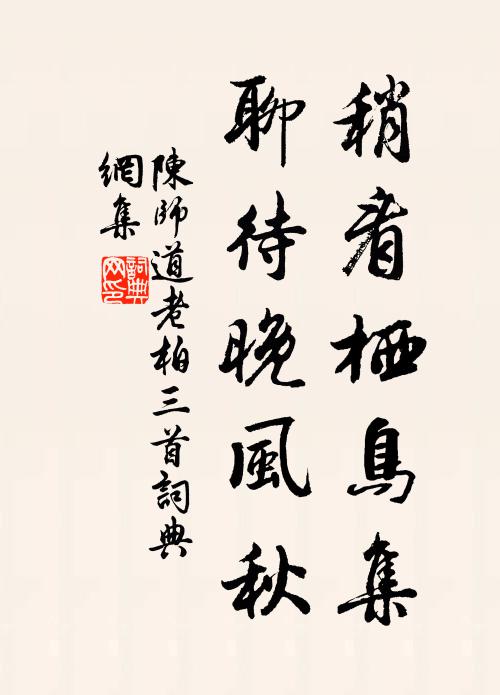 稍看栖鳥集
聊待晚風秋
陳師道老柏三首詞典
網集
詞典網印